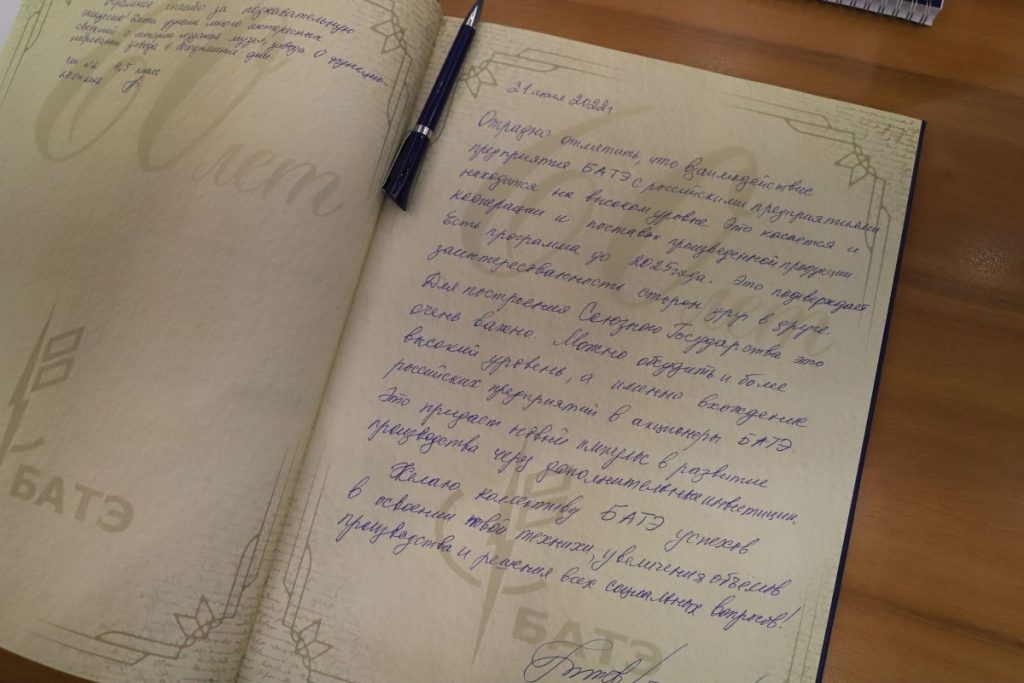 Огромное спасибо за познавательную
экскурсию! Дети узнали много интересных
сведений о истории создания музея, завода. О функцио-
нировании завода в сегодняшние дни.
60 лет
БАТЭ
21 июля 2022г.
Отрадно отметить, что взаимодействие
предприятия БАТЭ с российскими предприятиями
находится на высоком уровне. Это касается и
кооперации и поставок произведенной продукции.
Есть программа до 2025 года. Это подтверждает
заинтересованность сторон друг в друге.
Для построения Союзного Государства это
очень важно. Можно обсудить и более
высокий уровень, а именно вхождение
российских предприятий в акционеры БАТЭ.
Это придаст новый импульс в развитие
производства через дополнительные инвестиции.
Желаю коллективу БАТЭ успехов
в освоении новой техники, увеличения объемов
производства и решения всех социальных вопросов!
60 лет
БАТЭ